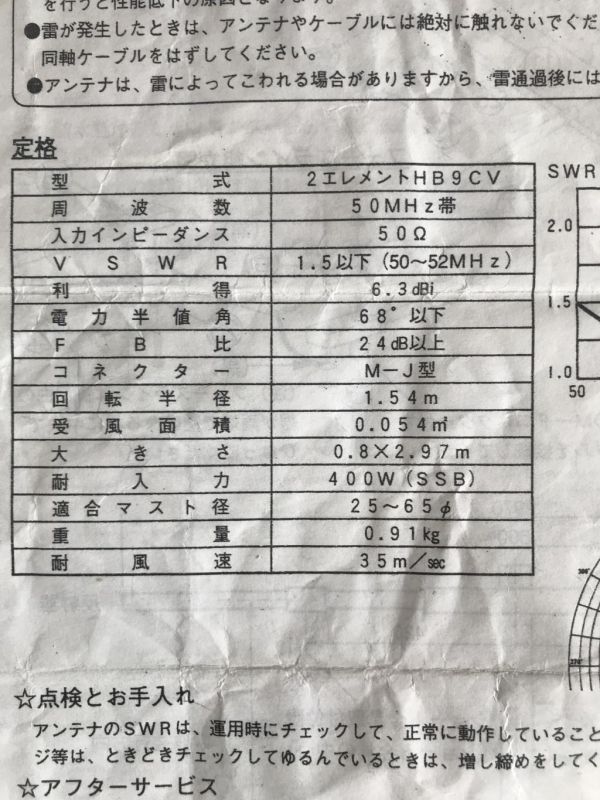 を行うと性能低下の原因となります。
●雷が発生したときは、アンテナやケーブルには絶対に触れないでくだ
同軸ケーブルをはずしてください。
●アンテナは、雷によってこわれる場合がありますから、雷通過後には
定格
型式 2エレメントHB9CV
周波数 50MHz帯
入力インピーダンス 50Ω
VSWR 1.5以下(50〜52MHz)
利得 6.3dBi
電力半値角 68°以下
FB比 24dB以上
コネクター M−J型
回転半径 1.54m
受風面積 0.054㎡
大きさ 0.8×2.97m
耐入力 400W(SSB)
適合マスト径 25〜65φ
重量 0.91kg
耐風速 35m/sec
SWR
2.0
1.5
1.0
50
☆点検とお手入れ
アンテナのSWRは、運用時にチェックして、正常に動作していること
ジ等は、ときどきチェックしてゆるんでいるときは、増し締めをしてく
☆アフターサービス